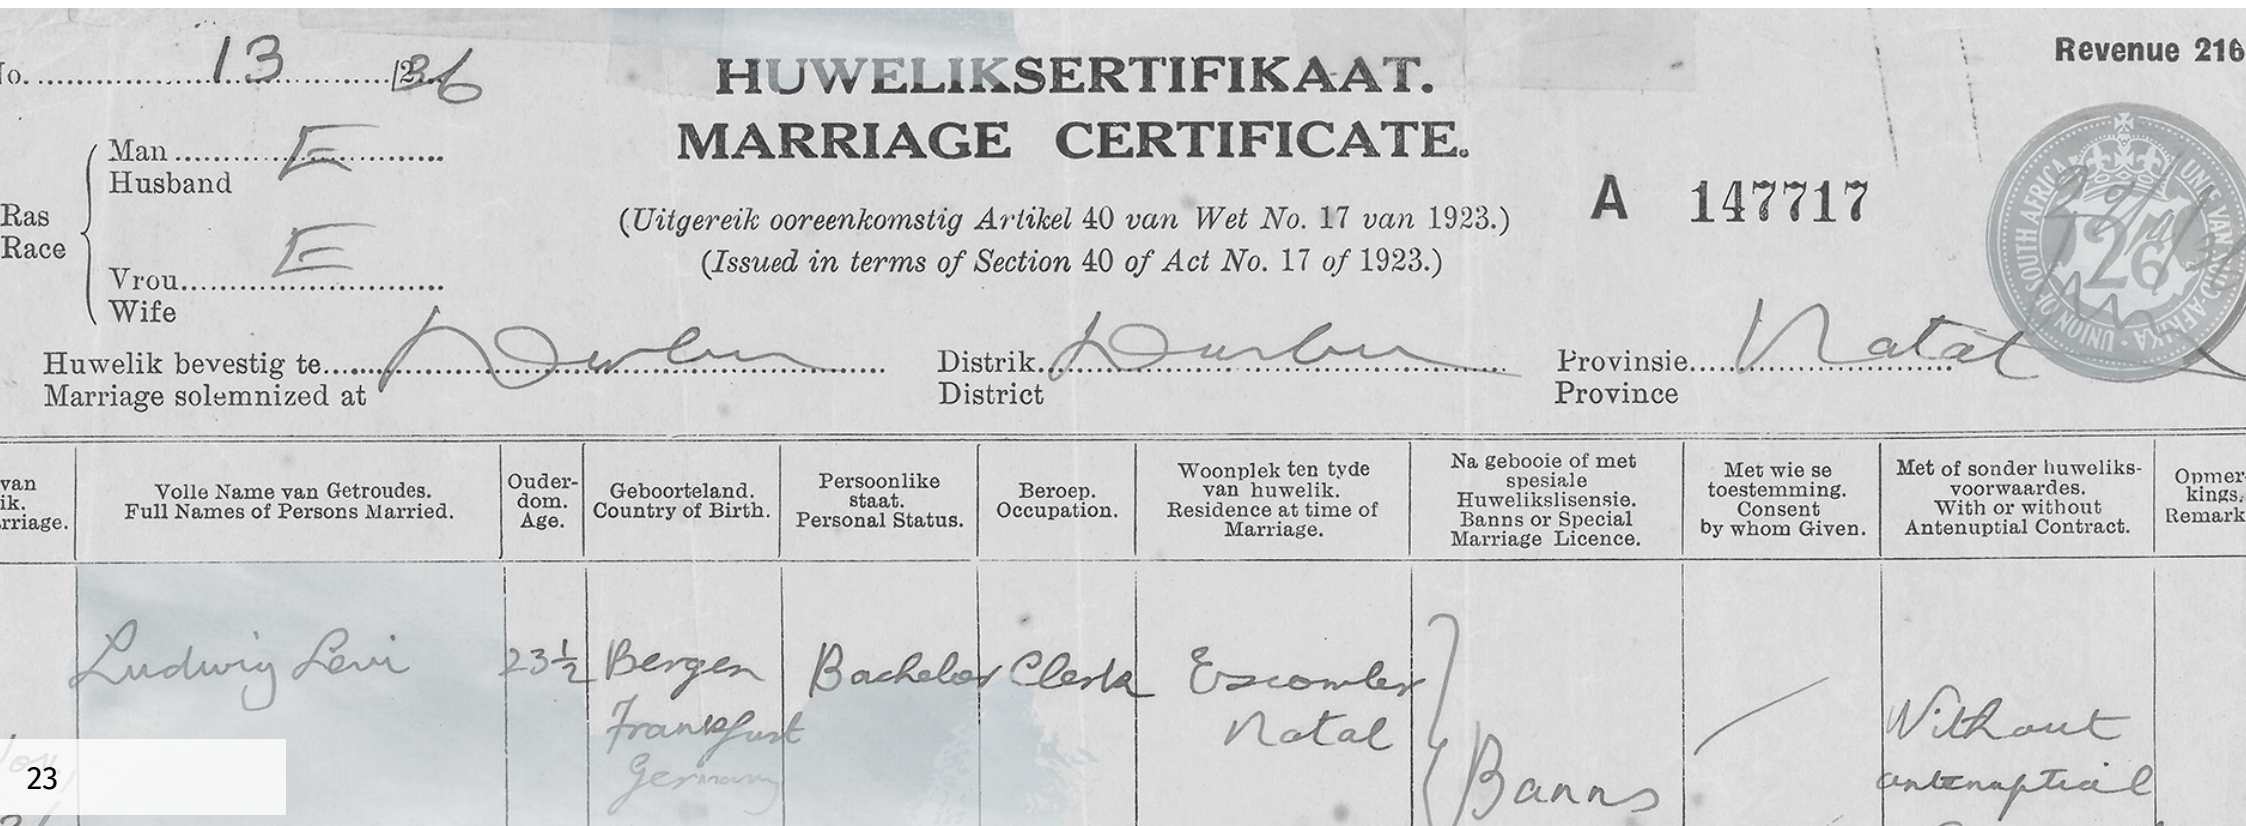 No. 13 /1236
HUWELIKSERTIFIKAAT.
MARRIAGE CERTIFICATE.
Revenue 216
Ras
Race
Man E
Husband
Vrou E
Wife
(Uitgereik ooreenkomstig Artikel 40 van Wet No. 17 van 1923.)
(Issued in terms of Section 40 of Act No. 17 of 1923.)
A 147717
UNION OF SOUTH AFRICA · UNIE VAN SUID-AFRIKA
126
Huwelik bevestig te Durban
Marriage solemnized at
Distrik Durban
District
Provinsie Natal
Province
van
ik.
rriage.
Volle Name van Getroudes.
Full Names of Persons Married.
Ouder-
dom.
Age.
Geboorteland.
Country of Birth.
Persoonlike
staat.
Personal Status.
Beroep.
Occupation.
Woonplek ten tyde
van huwelik.
Residence at time of
Marriage.
Na gebooie of met
spesiale
Huwelikslisensie.
Banns or Special
Marriage Licence.
Met wie se
toestemming.
Consent
by whom Given.
Met of sonder huweliks-
voorwaardes.
With or without
Antenuptial Contract.
Opmer-
kings.
Remark
Ludwig Levi
23½
Bergen
Frankfurt
Germany
Bachelor
Clerk
Escombe
Natal
Banns
Without
antenuptial
23